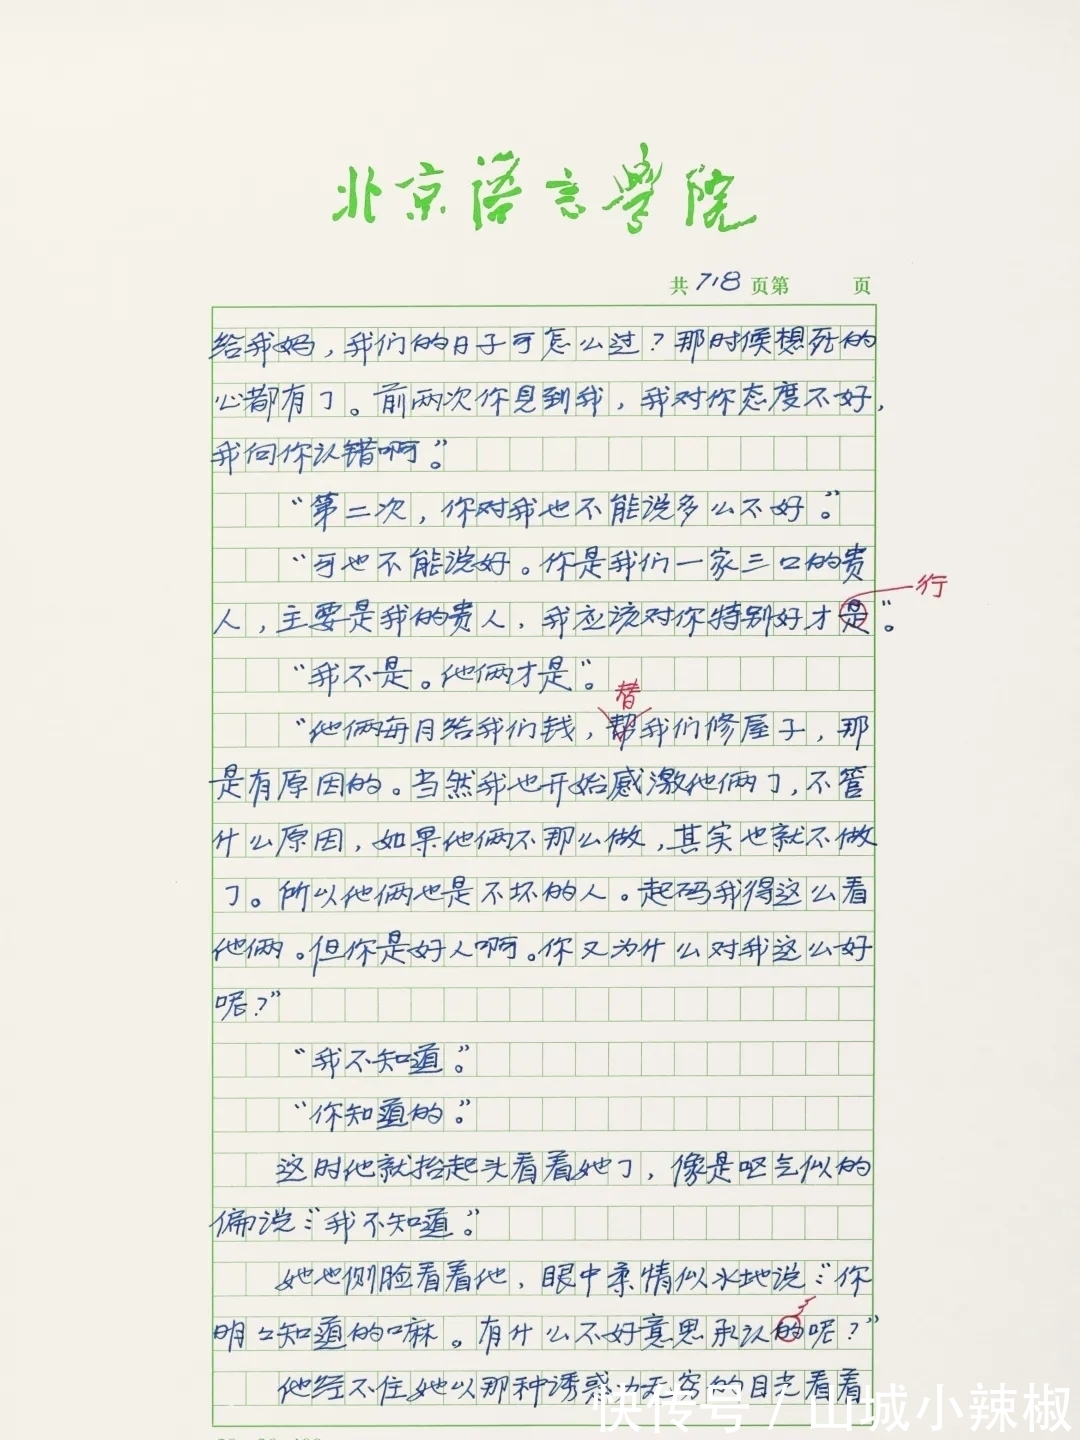 北京语言学院
共718页第 页
给我妈，我们的日子可怎么过？那时候想死的
心都有了。前两次你见到我，我对你态度不好，
我向你认错啊。”
“第二次，你对我也不能说多么不好。”
“可也不能说好。你是我们一家三口的贵
行
人，主要是我的贵人，我应该对你特别好才是”。
“我不是。他俩才是”。
替
“他俩每月给我们钱，帮我们修屋子，那
是有原因的。当然我也开始感激他俩了，不管
什么原因，如果他俩不那么做，其实也就不做
了。所以他俩也是不坏的人。起码我得这么看
他俩。但你是好人啊。你又为什么对我这么好
呢？”
“我不知道。”
“你知道的。”
这时他就抬起头看着她了，像是呕气似的
偏说：“我不知道。”
她也侧脸看着他，眼中柔情似水地说：“你
明明知道的嘛。有什么不好意思承认的呢？”
他经不住她以那种诱惑力无穷的目光看着
快传号 / 山城小辣椒